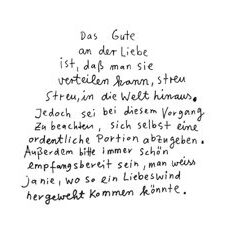 Das Gute
an der Liebe
ist, daß man sie
verteilen kann, streu
Streu, in die Welt hinaus.
Jedoch sei bei diesem Vorgang
zu beachten, sich selbst eine
ordentliche Portion abzugeben.
Außerdem bitte immer schön
empfangsbereit sein, man weiss
ja nie, wo so ein Liebeswind
hergeweht kommen könnte.